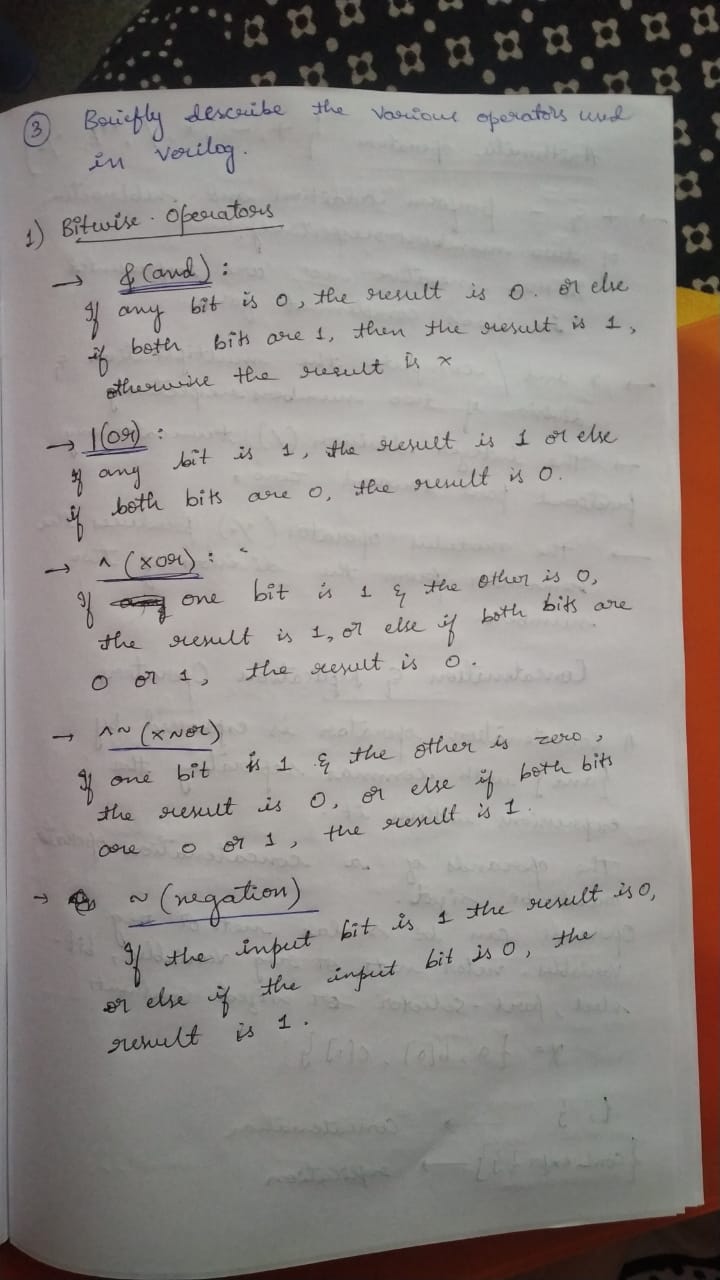 ③ Briefly describe the various operators used
in Verilog.
1) Bitwise. Operators
→ & (and) :
If any bit is 0, the result is 0. or else
if both bits are 1, then the result is 1,
otherwise the result is x
→ | (or) :
If any bit is 1, the result is 1 or else
if both bits are 0, the result is 0.
→ ^ (xor) :
If one bit is 1 & the other is 0,
the result is 1, or else if both bits are
0 or 1, the result is 0.
→ ^~ (xNor)
If one bit is 1 & the other is zero,
the result is 0, or else if both bits
are 0 or 1, the result is 1.
→ ~ (negation)
If the input bit is 1 the result is 0,
or else if the input bit is 0, the
result is 1.